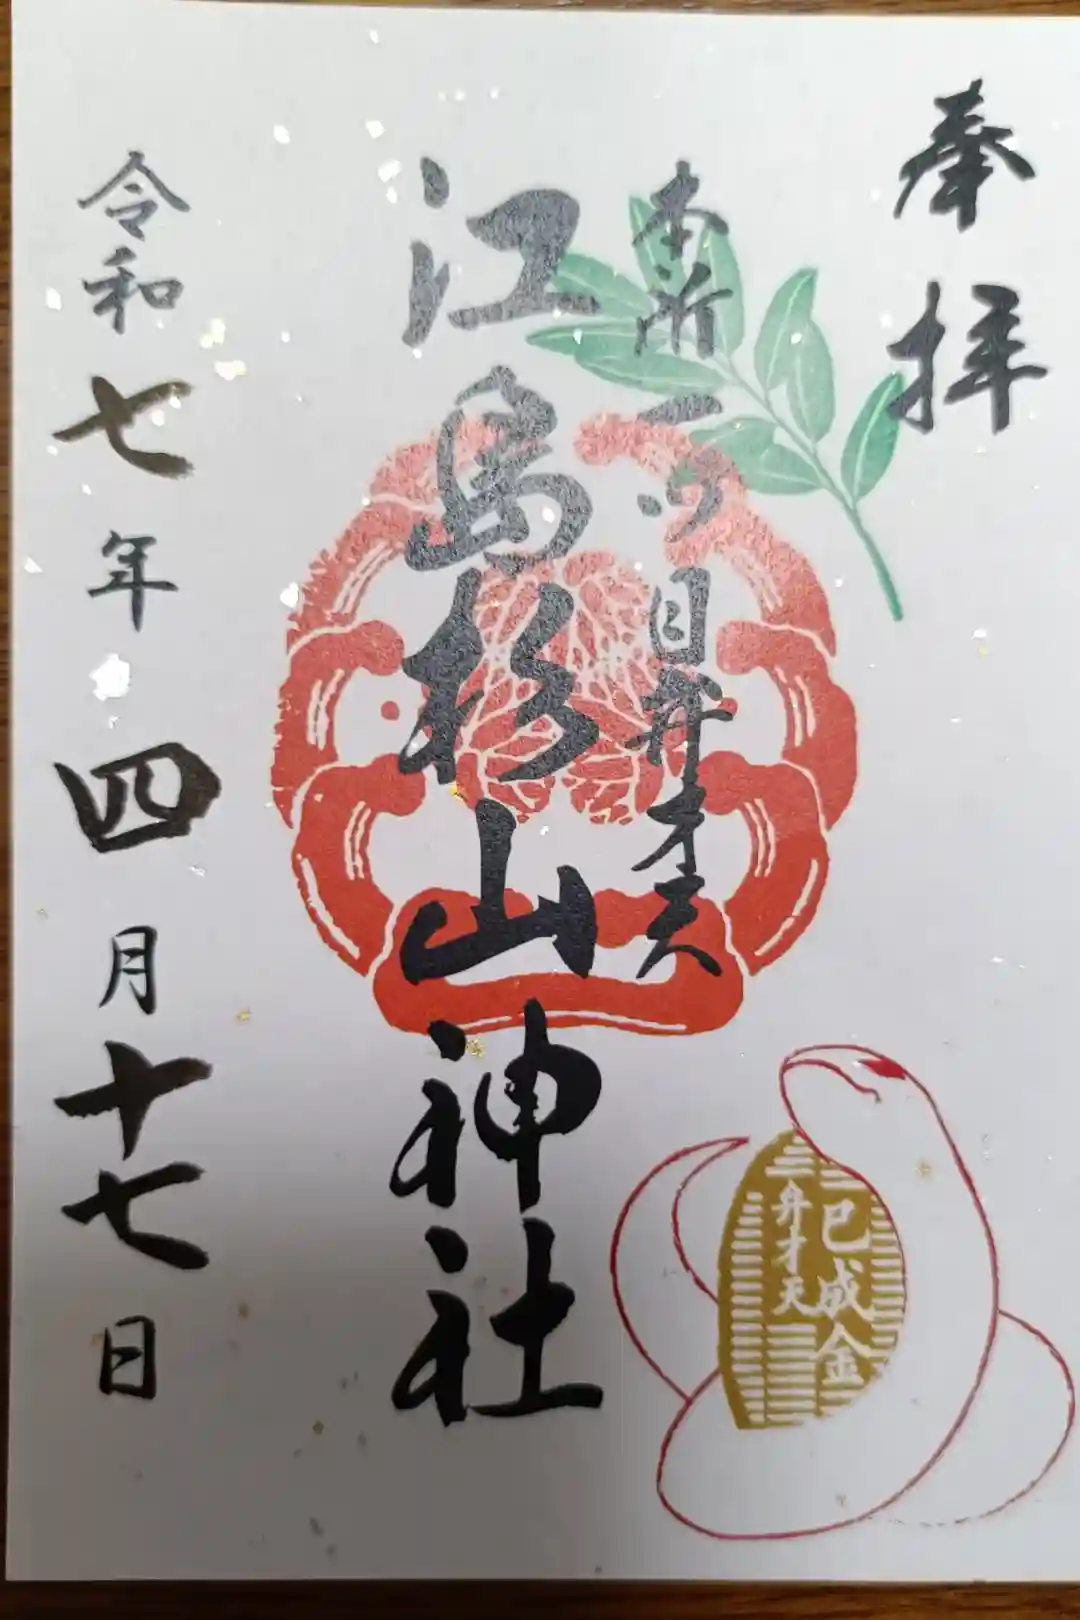 奉拝
本所一ツ目弁才天
江島杉山神社
令和七年四月十七日
巳成金
弁才天